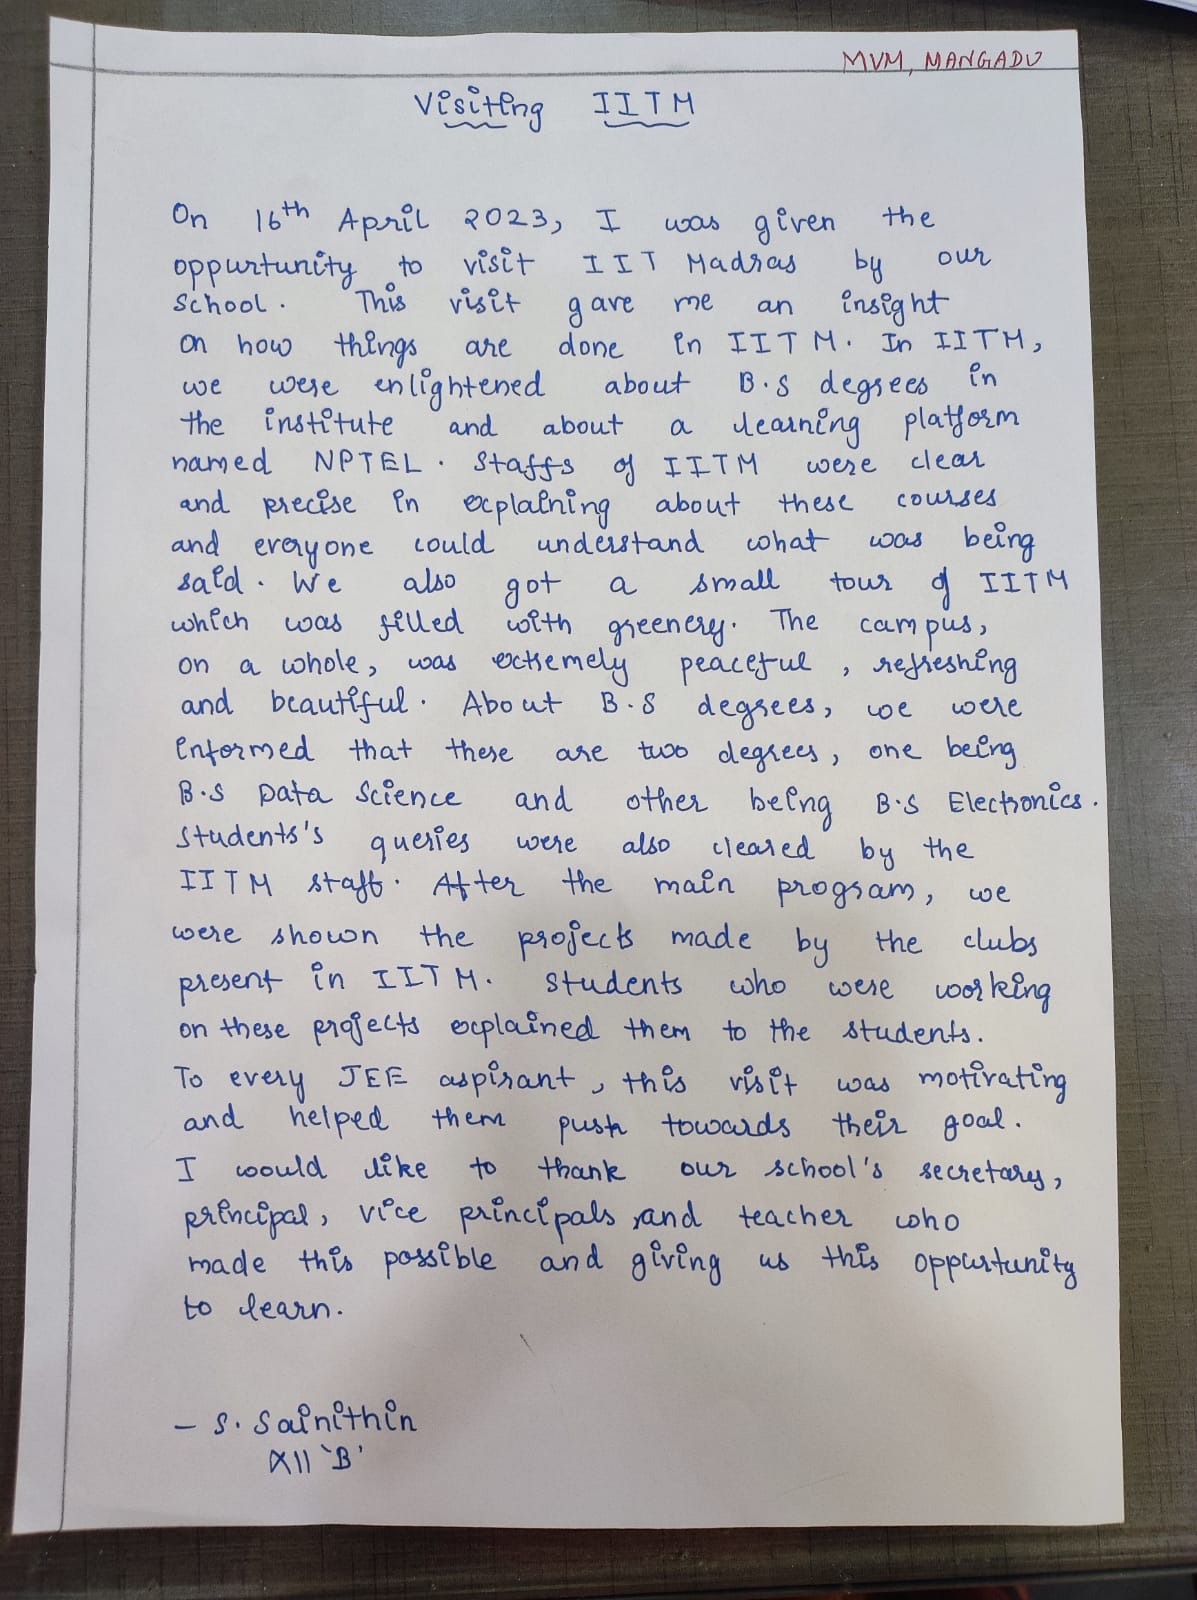 MVM, MANGADU
Visiting IITM
On 16th April 2023, I was given the
oppurtunity to visit IIT Madras by our
school. This visit gave me an insight
on how things are done in IITM. In IITM,
we were enlightened about B.S degrees in
the institute and about a learning platform
named NPTEL. Staffs of IITM were clear
and precise in explaining about these courses
and everyone could understand what was being
said. We also got a small tour of IITM
which was filled with greenery. The campus,
on a whole, was extremely peaceful, refreshing
and beautiful. About B.S degrees, we were
informed that there are two degrees, one being
B.S Data Science and other being B.S Electronics.
Students's queries were also cleared by the
IITM staff. After the main program, we
were shown the projects made by the clubs
present in IITM. Students who were working
on these projects explained them to the students.
To every JEE aspirant, this visit was motivating
and helped them push towards their goal.
I would like to thank our school's secretary,
principal, vice principals and teacher who
made this possible and giving us this oppurtunity
to learn.
- S. Sainithin
XII 'B'